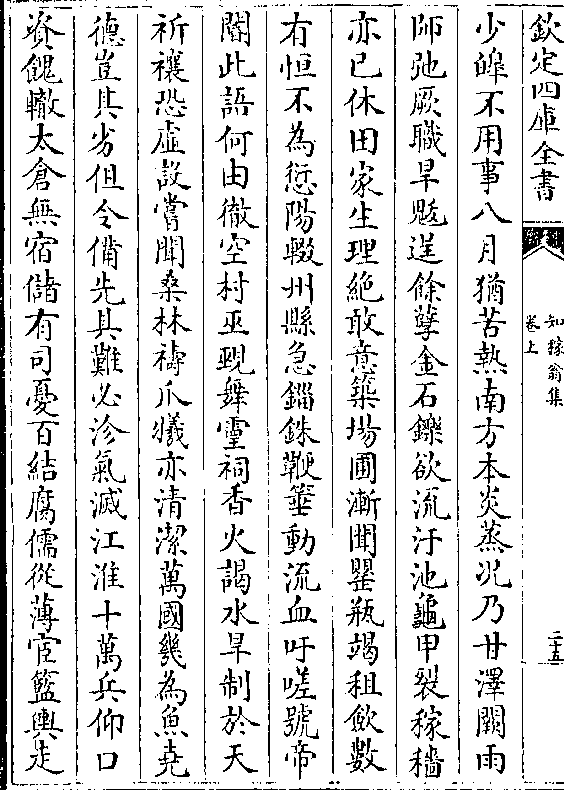 欽定四庫全書
知稼翁集
卷上
二十五
少皥不用事八月猶苦熱南方本炎蒸況乃甘澤闕雨
師弛厥職旱魃逞餘孽金石鑠欲流汙池龜甲裂稼穡
亦已休田家生理絶敢意築場圃漸聞罌瓶竭租歛數
有恒不為愆陽輟州縣急錙銖鞭箠動流血吁嗟號帝
閽此語何由徹空村巫覡舞靈祠香火謁水旱制於天
祈禳恐虛設嘗聞桑林禱爪犠亦清潔萬國幾為魚堯
德豈其劣但令備先具難必沴氣滅江淮十萬兵仰口
資餽轍太倉無宿儲有司憂百結腐儒從薄宦籃輿走